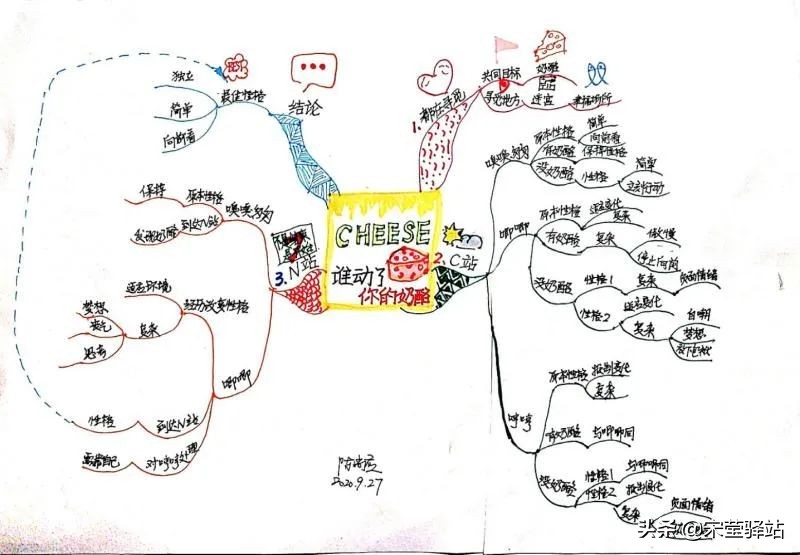 CHEESE
谁动了
你的奶酪
1.都在寻觅
共同目标
奶酪
寻觅地方
迷宫
幸福场所
2.C站
嗅嗅匆匆
原本性格
简单
向前看
有奶酪
保持性格
没奶酪
性格
简单
立刻行动
唧唧
原本性格
适应变化
复杂
有奶酪
复杂
傲慢
停止向前
没奶酪
性格1
复杂
负面情绪
性格2
适应变化
复杂
自嘲
梦想
放下包袱
哼哼
原本性格
抵制变化
复杂
有奶酪
与唧唧同
没奶酪
性格1
与唧唧同
性格2
抵制变化
复杂
负面情绪
3.N站
嗅嗅匆匆
原本性格
保持
到达N站
发现奶酪
唧唧
经历改变性格
适应环境
复杂
梦想
勇气
思考
到达N站
性格
对哼哼处理
要靠自己
结论
BEST
最佳性格
独立
简单
向前看
2020.9.27
头条@宋莹驿站